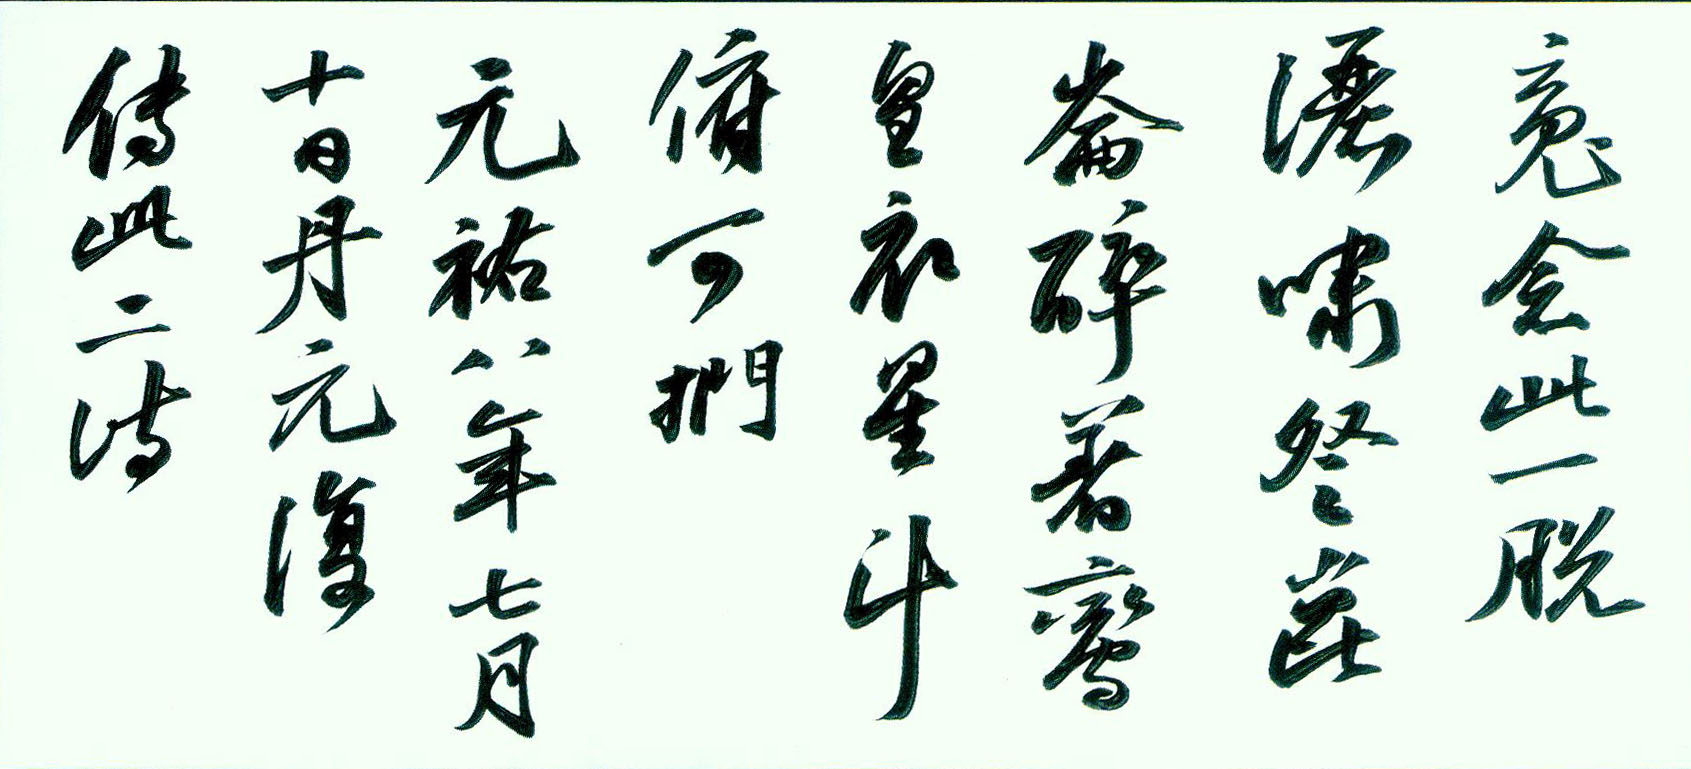 魂念此一脫
灑嘯祭崑
崙醉著鸞
皇衣星斗
俯可捫
元祐八年七月
十日丹元復
傳此二詩